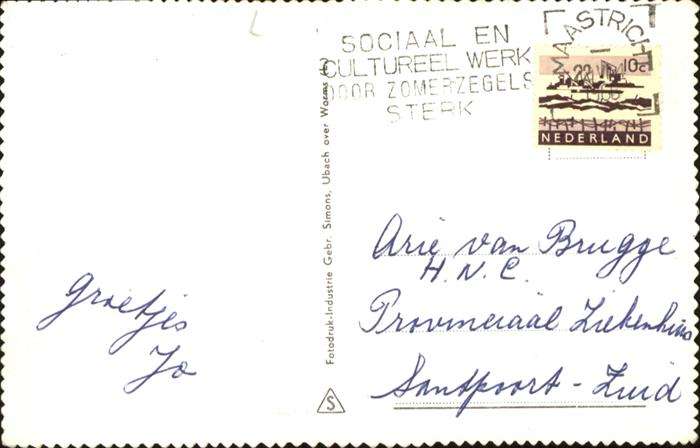 SOCIAAL EN
CULTUREEL WERK
DOOR ZOMERZEGELS
STERK
MAASTRICHT
10c
NEDERLAND
Fotodruk-Industrie Gebr. Simons, Ubach over Worms
Groetjes
Jo
Arie van Brugge
H.N.C.
Provinciaal Ziekenhuis
Santpoort-Zuid
S